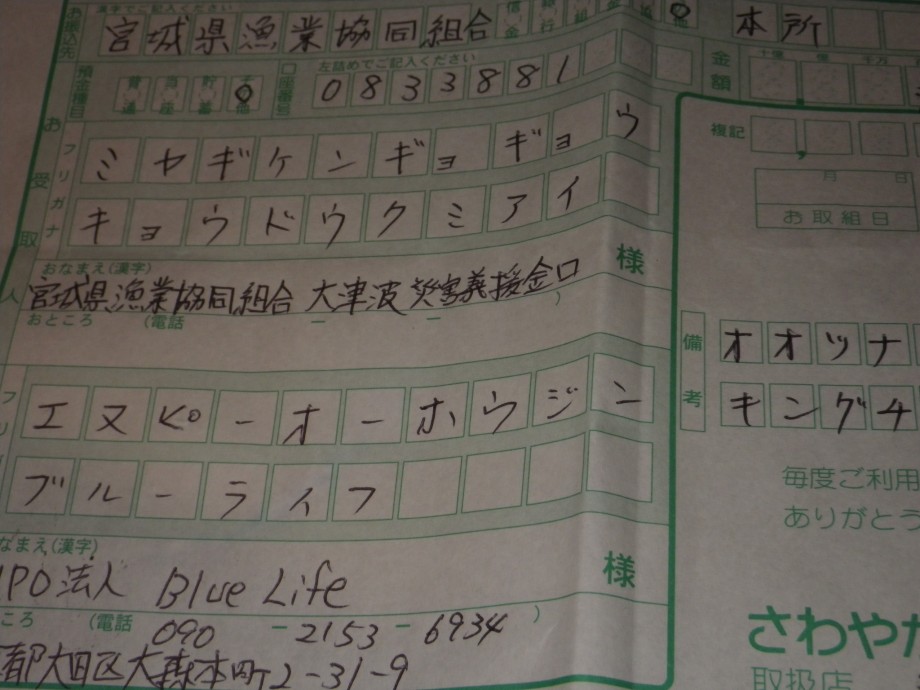 漢字でご記入ください
お振込先 宮城県漁業協同組合 本所
預金種目 普通 当座 貯蓄 その他 口座番号 左詰めでご記入ください 0833881 金額 十億 億 千万
お受取人
フリガナ ミヤギケンギョギョウ
キョウドウクミアイ
複記
月 日
お取組日
おなまえ(漢字) 様
宮城県漁業協同組合 大津波災害義援金口
おところ (電話 ー ー )
備考 オオツナ
キングチ
エヌピーオーホウジン
ブルーライフ
毎度ご利用
ありがとう
なまえ(漢字) 様
NPO法人 Blue Life
ころ (電話 090 ー 2153 ー 6934 )
都大田区大森本町2-31-9
さわやか
取扱店